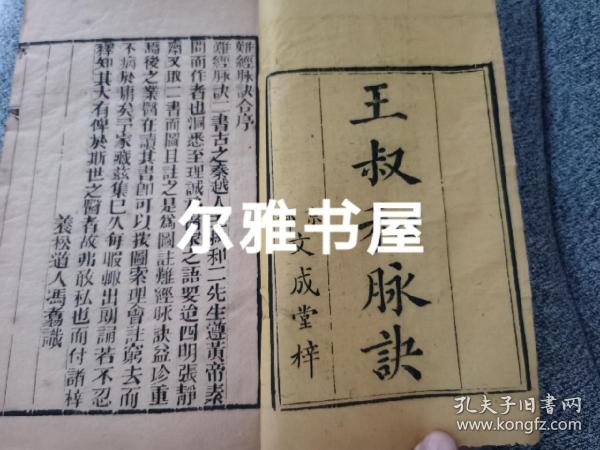 王叔和脉訣
文成堂梓
難經脉訣合序
難經脉訣二書古之秦越人 和二先生遵黄帝素
問而作者也洞悉至理誠 之語要迨四明張靜
齋又取二書而圖且註之是為圖註難經脉訣益珍重
焉後之業醫者讀其書即可以按圖索理會註窮去而
不病於庸矣予家藏兹集已久每暇輒出翻誦若不忍
釋知其大有裨於斯世之醫者故弗敢私也而付諸梓
養松道人馮 識
尔雅书屋
孔夫子旧书网
www.kongfz.com